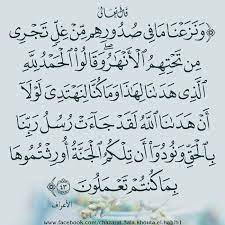 قال تعالى
﴿وَنَزَعْنَا مَا فِي صُدُورِهِم مِّنْ غِلٍّ تَجْرِي
مِن تَحْتِهِمُ ٱلْأَنْهَٰرُ ۖ وَقَالُوا۟ ٱلْحَمْدُ لِلَّهِ
ٱلَّذِي هَدَىٰنَا لِهَٰذَا وَمَا كُنَّا لِنَهْتَدِيَ لَوْلَآ
أَنْ هَدَىٰنَا ٱللَّهُ ۖ لَقَدْ جَآءَتْ رُسُلُ رَبِّنَا
بِٱلْحَقِّ ۖ وَنُودُوٓا۟ أَن تِلْكُمُ ٱلْجَنَّةُ أُورِثْتُمُوهَا
بِمَا كُنتُمْ تَعْمَلُونَ ٤٣﴾
الأعراف